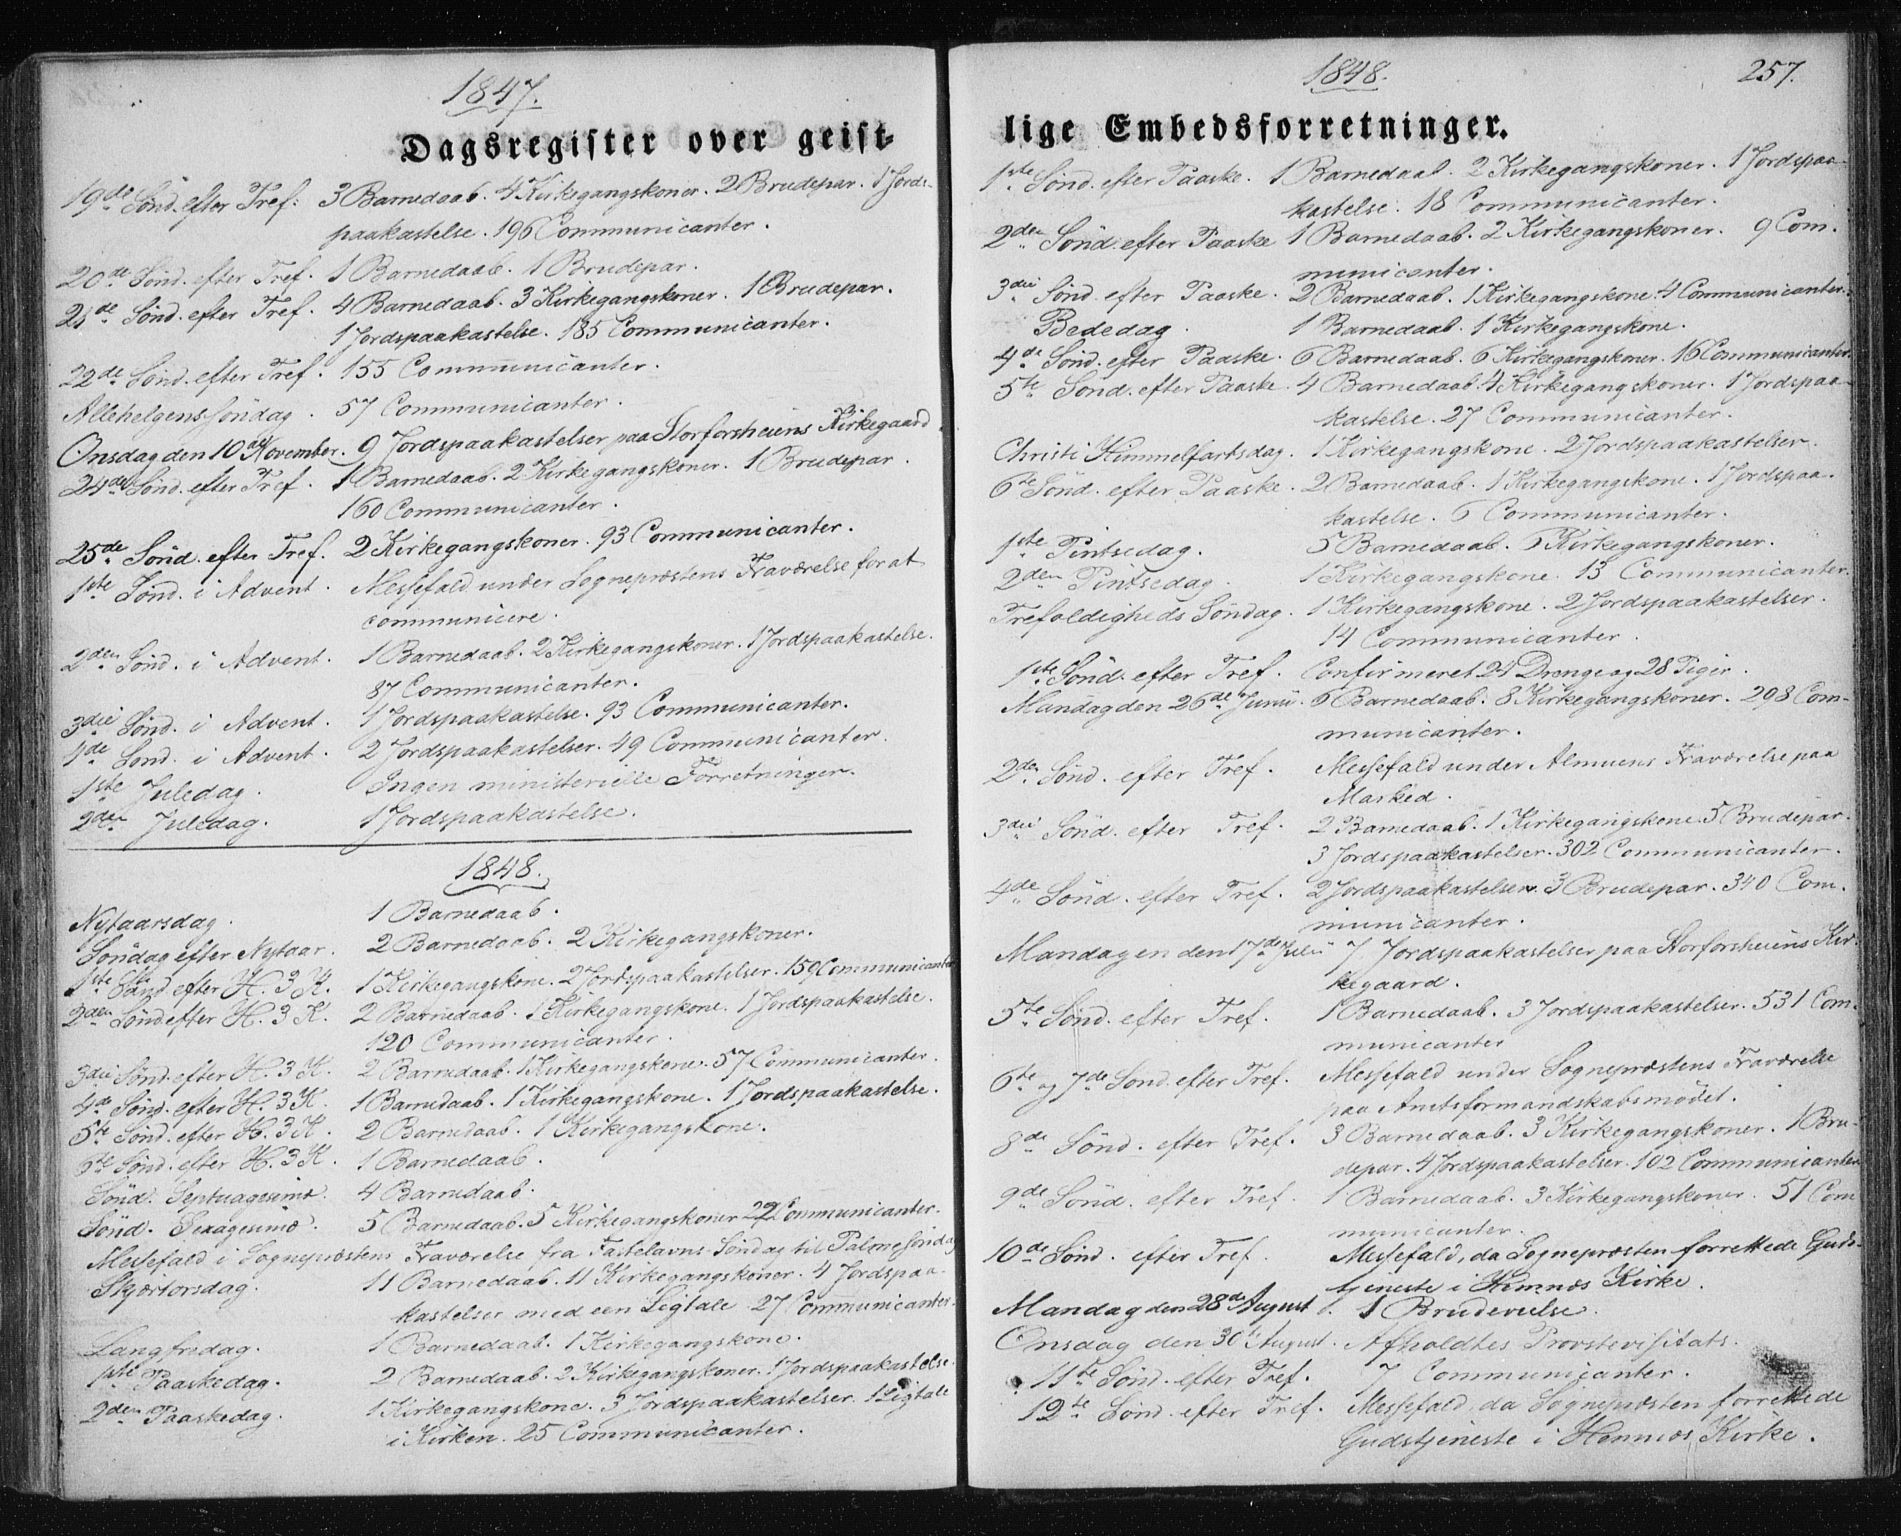 1847.
Dagsregister over geist-
19de Sønd. efter Tref. 3 Barnedaab. 4 Kirkegangskoner. 2 Brudepar. 1 Jords-
paakastelse. 196 Communicanter.
20de Sønd. efter Tref. 1 Barnedaab. 1 Brudepar.
21de Sønd. efter Tref. 4 Barnedaab. 3 Kirkegangskoner. 1 Brudepar.
1 Jordspaakastelse. 185 Communicanter.
22de Sønd. efter Tref. 155 Communicanter.
Allehelgens Søndag. 57 Communicanter.
Onsdag den 10de November. 9 Jordspaakastelser paa Storforsheiens Kirkegaard.
24de Sønd. efter Tref. 1 Barnedaab. 2 Kirkegangskoner. 1 Brudepar.
160 Communicanter.
25de Sønd. efter Tref. 2 Kirkegangskoner. 93 Communicanter.
1ste Sønd. i Advent. Messefald under Sognepræstens Fraværelse for at
communicere.
2den Sønd. i Advent. 1 Barnedaab. 2 Kirkegangskoner. 1 Jordspaakastelse.
87 Communicanter.
3die Sønd. i Advent. 1 Jordspaakastelse. 93 Communicanter.
4de Sønd. i Advent. 2 Jordspaakastelser. 49 Communicanter.
1ste Juledag. Ingen ministerielle Forretninger.
2den Juledag. 1 Jordspaakastelse.
1848.
Nytaarsdag. 1 Barnedaab.
Søndag efter Nytaar. 2 Barnedaab. 2 Kirkegangskoner.
1ste Sønd efter H. 3 K. 1 Kirkegangskone. 2 Jordspaakastelser. 159 Communicanter
2den Sønd efter H. 3 K. 2 Barnedaab. 1 Kirkegangskone. 1 Jordspaakastelse.
120 Communicanter.
3die Sønd. efter H. 3 K. 2 Barnedaab. 1 Kirkegangskone. 57 Communicanter.
4de Sønd. efter H. 3 K. 1 Barnedaab. 1 Kirkegangskone. 1 Jordspaakastelse.
5te Sønd. efter H. 3 K. 2 Barnedaab. 1 Kirkegangskone.
6te Sønd. efter H. 3 K. 1 Barnedaab.
Sønd. Septuagesimæ. 4 Barnedaab.
Sønd. Sexagesimæ. 5 Barnedaab. 5 Kirkegangskoner 22 Communicanter.
Messefald i Sognepræstens Fraværelse fra Fastelavns Søndag til Palme Søndag
Skjærtorsdag. 11 Barnedaab. 11 Kirkegangskoner. 4 Jordspaa-
kastelser med een Ligtale 27 Communicanter.
Langfredag. 1 Barnedaab. 1 Kirkegangskone.
1ste Paaskedag. 2 Barnedaab. 2 Kirkegangskoner. 1 Jordspaakastelse.
2den Paaskedag. 1 Kirkegangskone. 3 Jordspaakastelser. 1 Ligtale
i Kirken. 25 Communicanter.
1848.
257.
lige Embedsforretninger.
1ste Sønd. efter Paaske. 1 Barnedaab. 2 Kirkegangskoner. 1 Jordspaa-
kastelse. 18 Communicanter.
2den Sønd. efter Paaske 1 Barnedaab. 2 Kirkegangskoner. 9 Com-
municanter.
3die Sønd. efter Paaske. 2 Barnedaab. 1 Kirkegangskone. 4 Communicanter.
Bededag. 1 Barnedaab. 1 Kirkegangskone.
4de Sønd. efter Paaske. 6 Barnedaab. 6 Kirkegangskoner. 16 Communicanter.
5te Sønd. efter Paaske. 4 Barnedaab. 4 Kirkegangskoner. 1 Jordspaa-
kastelse. 27 Communicanter.
Christi Himmelfartsdag. 1 Kirkegangskone. 2 Jordspaakastelser.
6te Sønd. efter Paaske. 2 Barnedaab. 1 Kirkegangskone. 1 Jordspaa-
kastelse. 6 Communicanter.
1ste Pintsedag. 5 Barnedaab. 5 Kirkegangskoner.
2den Pintsedag. 1 Kirkegangskone. 13 Communicanter.
Trefoldigheds Søndag. 1 Kirkegangskone. 2 Jordspaakastelser.
14 Communicanter.
1ste Sønd. efter Tref. Confirmeret 24 Drenge og 28 Piger.
Mandag den 26de Junii. 6 Barnedaab. 8 Kirkegangskoner. 298 Com-
municanter.
2den Sønd. efter Tref. Messefald under Almuens Fraværelse paa
Marked.
3die Sønd. efter Tref. 2 Barnedaab. 1 Kirkegangskone. 5 Brudepar.
3 Jordspaakastelser. 302 Communicanter.
4de Sønd. efter Tref. 2 Jordspaakastelser. 3 Brudepar. 340 Com-
municanter.
Mandagen den 17de Julii 7 Jordspaakastelser paa Storforsheiens Kir-
kegaard.
5te Sønd. efter Tref. 1 Barnedaab. 3 Jordspaakastelser. 531 Com-
municanter
6te og 7de Sønd. efter Tref. Messefald under Sognepræstens Fraværelse
paa Amtsformandskabsmødet.
8de Sønd. efter Tref. 3 Barnedaab. 3 Kirkegangskoner. 1 Bru-
depar. 4 Jordspaakastelser. 102 Communicanter
9de Sønd. efter Tref. 1 Barnedaab. 3 Kirkegangskoner. 51 Com
municanter.
10de Sønd. efter Tref Messefald, da Sognepræsten forrettede Guds-
tjeneste i Hemnæs Kirke.
Mandag den 28de August. 1 Brudevielse.
Onsdag den 30te August. Afholdtes Provstevisitats.
11te Sønd. efter Tref. 7 Communicanter.
12te Sønd. efter Tref. Messefald, da Sognepræsten forrettede
Gudstjeneste i Hemnæs Kirke.